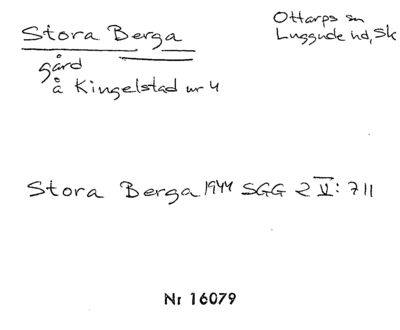 Stora Berga
Ottarps sn
Luggude hd, Sk
gård
å Kingelstad nr 4
Stora Berga 1944 SGG 2 V: 711
Nr 16079